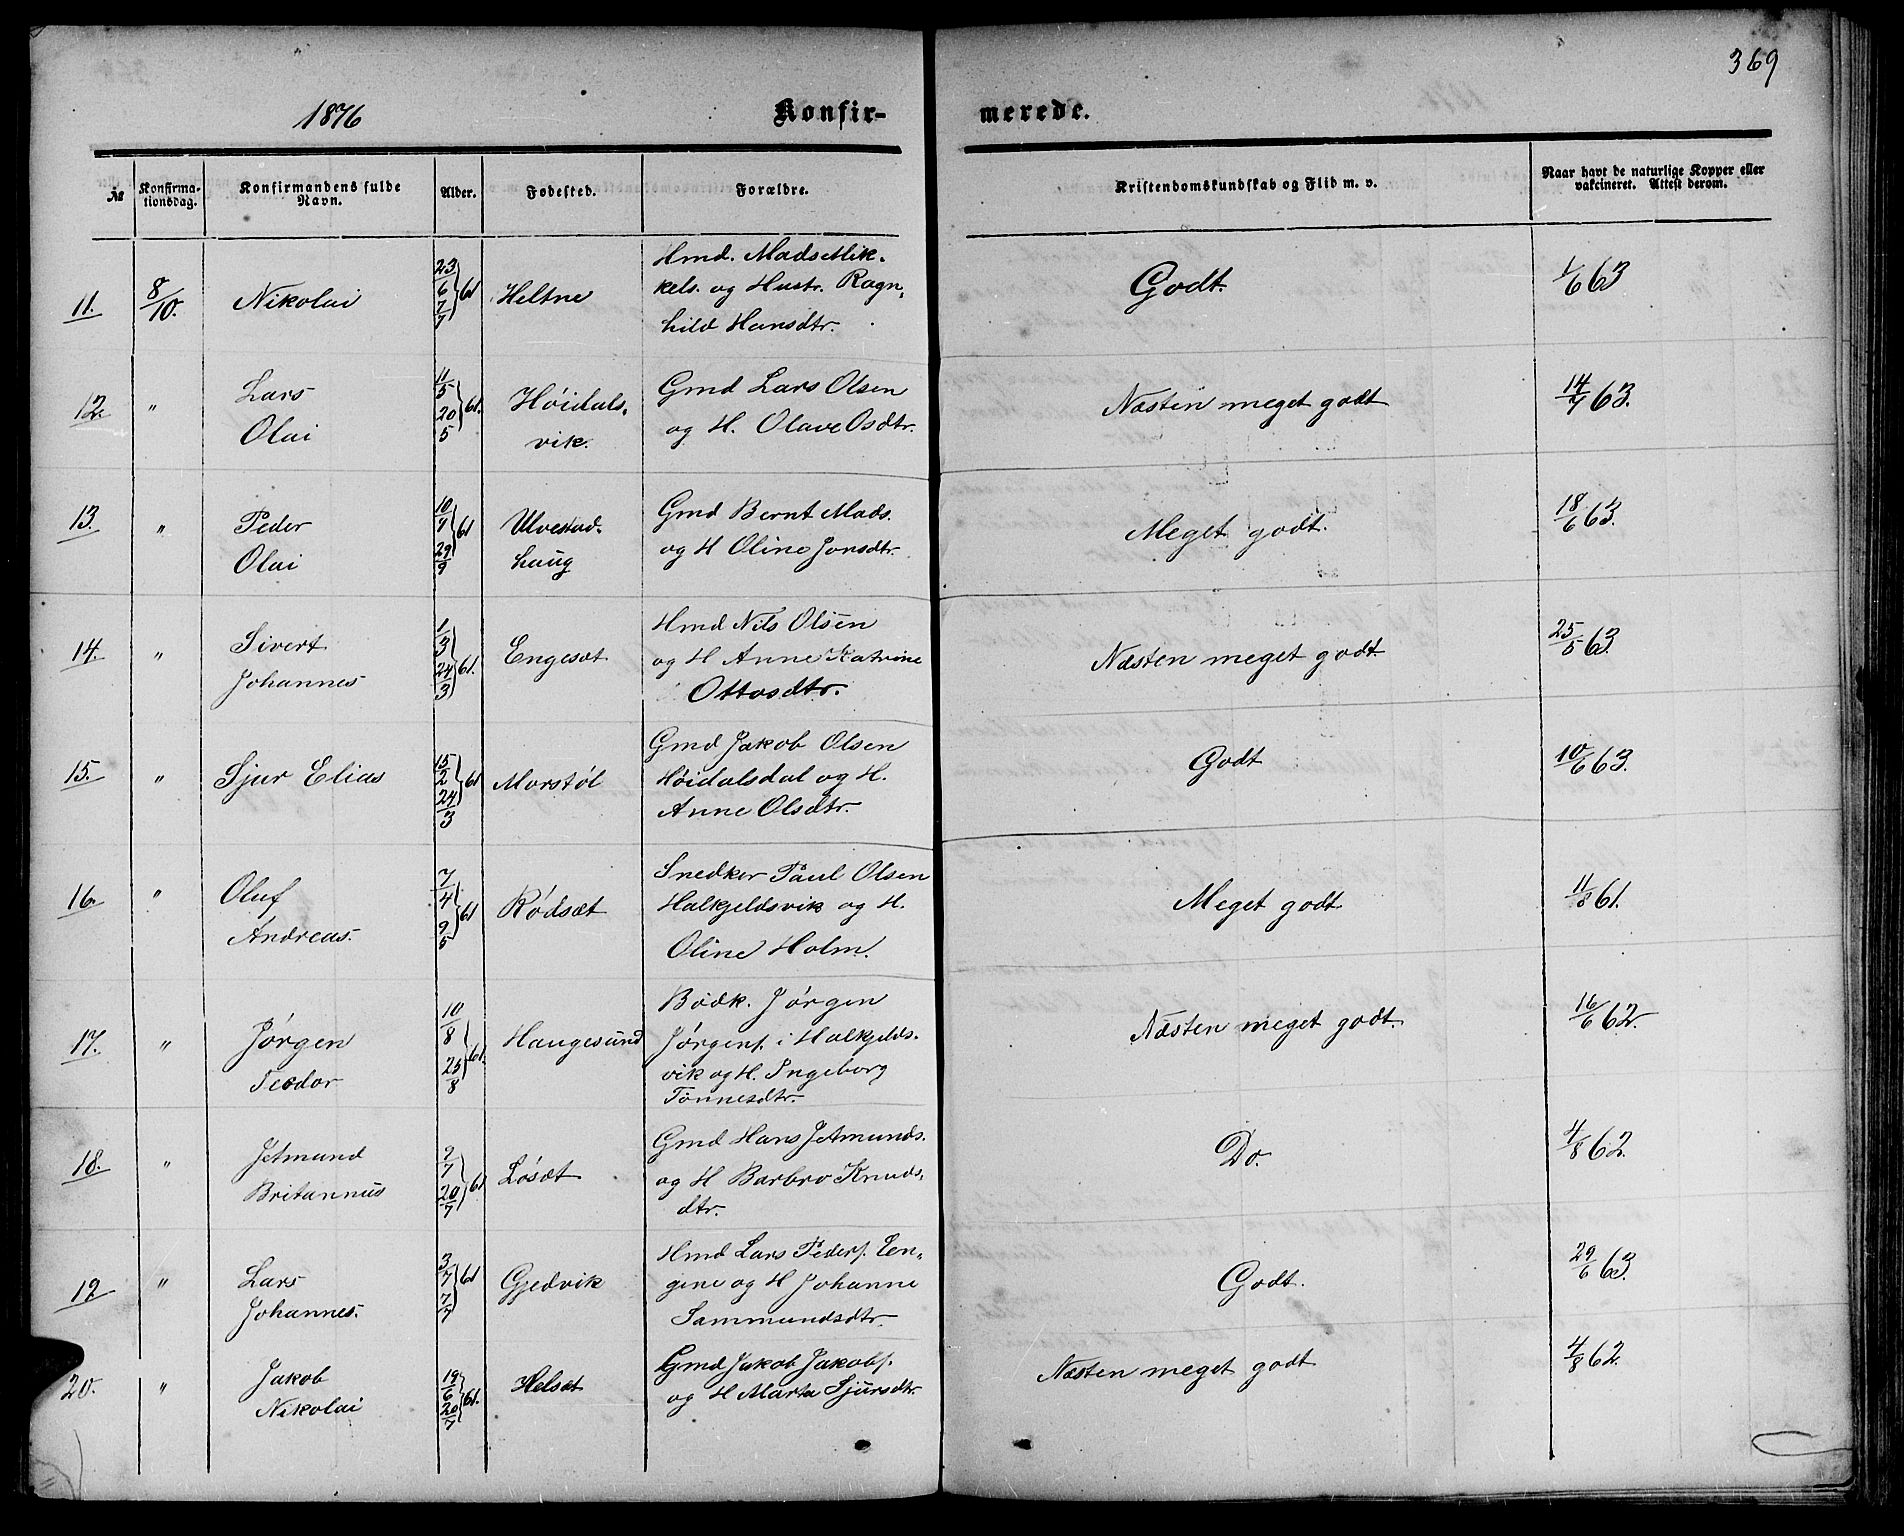 369
1876 Konfir- merede.
№ Konfirma-tionsdag. Konfirmandens fulde Navn. Alder. Fødested. Forældre. Kristendomskundskab og Flid m. v. Naar havt de naturlige Kopper eller vakcineret. Attest derom.
11. 8/10. Nikolai 23/6 7/7 61 Heltne Hmd. Mads Mik-
kels. og Hustr. Ragn-
hild Hansdtr. Godt. 1/6 63
12. " Lars
Olai 11/5 20/5 61. Høidals-
vik. Gmd Lars Olsen
og H. Olave Osdtr. Næsten meget godt 14/7 63.
13. " Peder
Olai 29/9 61 Ulvestad-
haug Gmd Bernt Mads.
og H Oline Jonsdtr. Meget godt. 18/6 63.
14. " Sivert
Johannes 1/3 24/3 61. Engesæt Hmd Nils Olsen
og H Anne Katrine
Ottosdtr. Næsten meget godt. 25/5 63.
15. " Sjur Elias 15/2 24/3 61 Morstøl Gmd Jakob Olsen
Høidalsdal og H.
Anne Olsdtr. Godt 10/6 63.
16. " Oluf
Andreas. 7/4 9/5 61 Rødsæt Snedker Paul Olsen
Halkjeldsvik og H.
Oline Holm. Meget godt 11/8 61.
17. " Jørgen
Teodor 10/8 25/8 61. Haugesund Bødk. Jørgen
Jørgens. i Halkjelds-
vik og H. Ingeborg
Tønnesdtr. Næsten meget godt. 16/6 62.
18. " Jetmund
Britannus 2/7 20/7 61 Løsæt Gmd Hans Jetmunds.
og H Barbro Knuds-
dtr. Do. 4/8 62.
19 " Lars
Johannes. 3/7 7/7 61 Gjedvik Hmd Lars Peders. Een-
gene og H Johanne
Sammundsdtr. Godt. 29/6 63.
20. " Jakob
Nikolai 19/6 20/7 61. Helsæt Gmd Jakob Jakobs.
og H Marta Sjursdtr. Næsten meget godt 4/8 62.